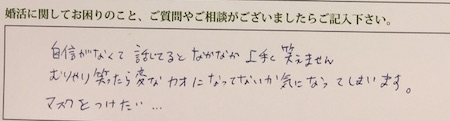 婚活に関してお困りのこと、ご質問やご相談がございましたらご記入下さい。
自信がなくて 話してるとなかなか上手く笑えません
むりやり笑ったら変なカオになってないか気になってしまいます。
マスクをつけたい…